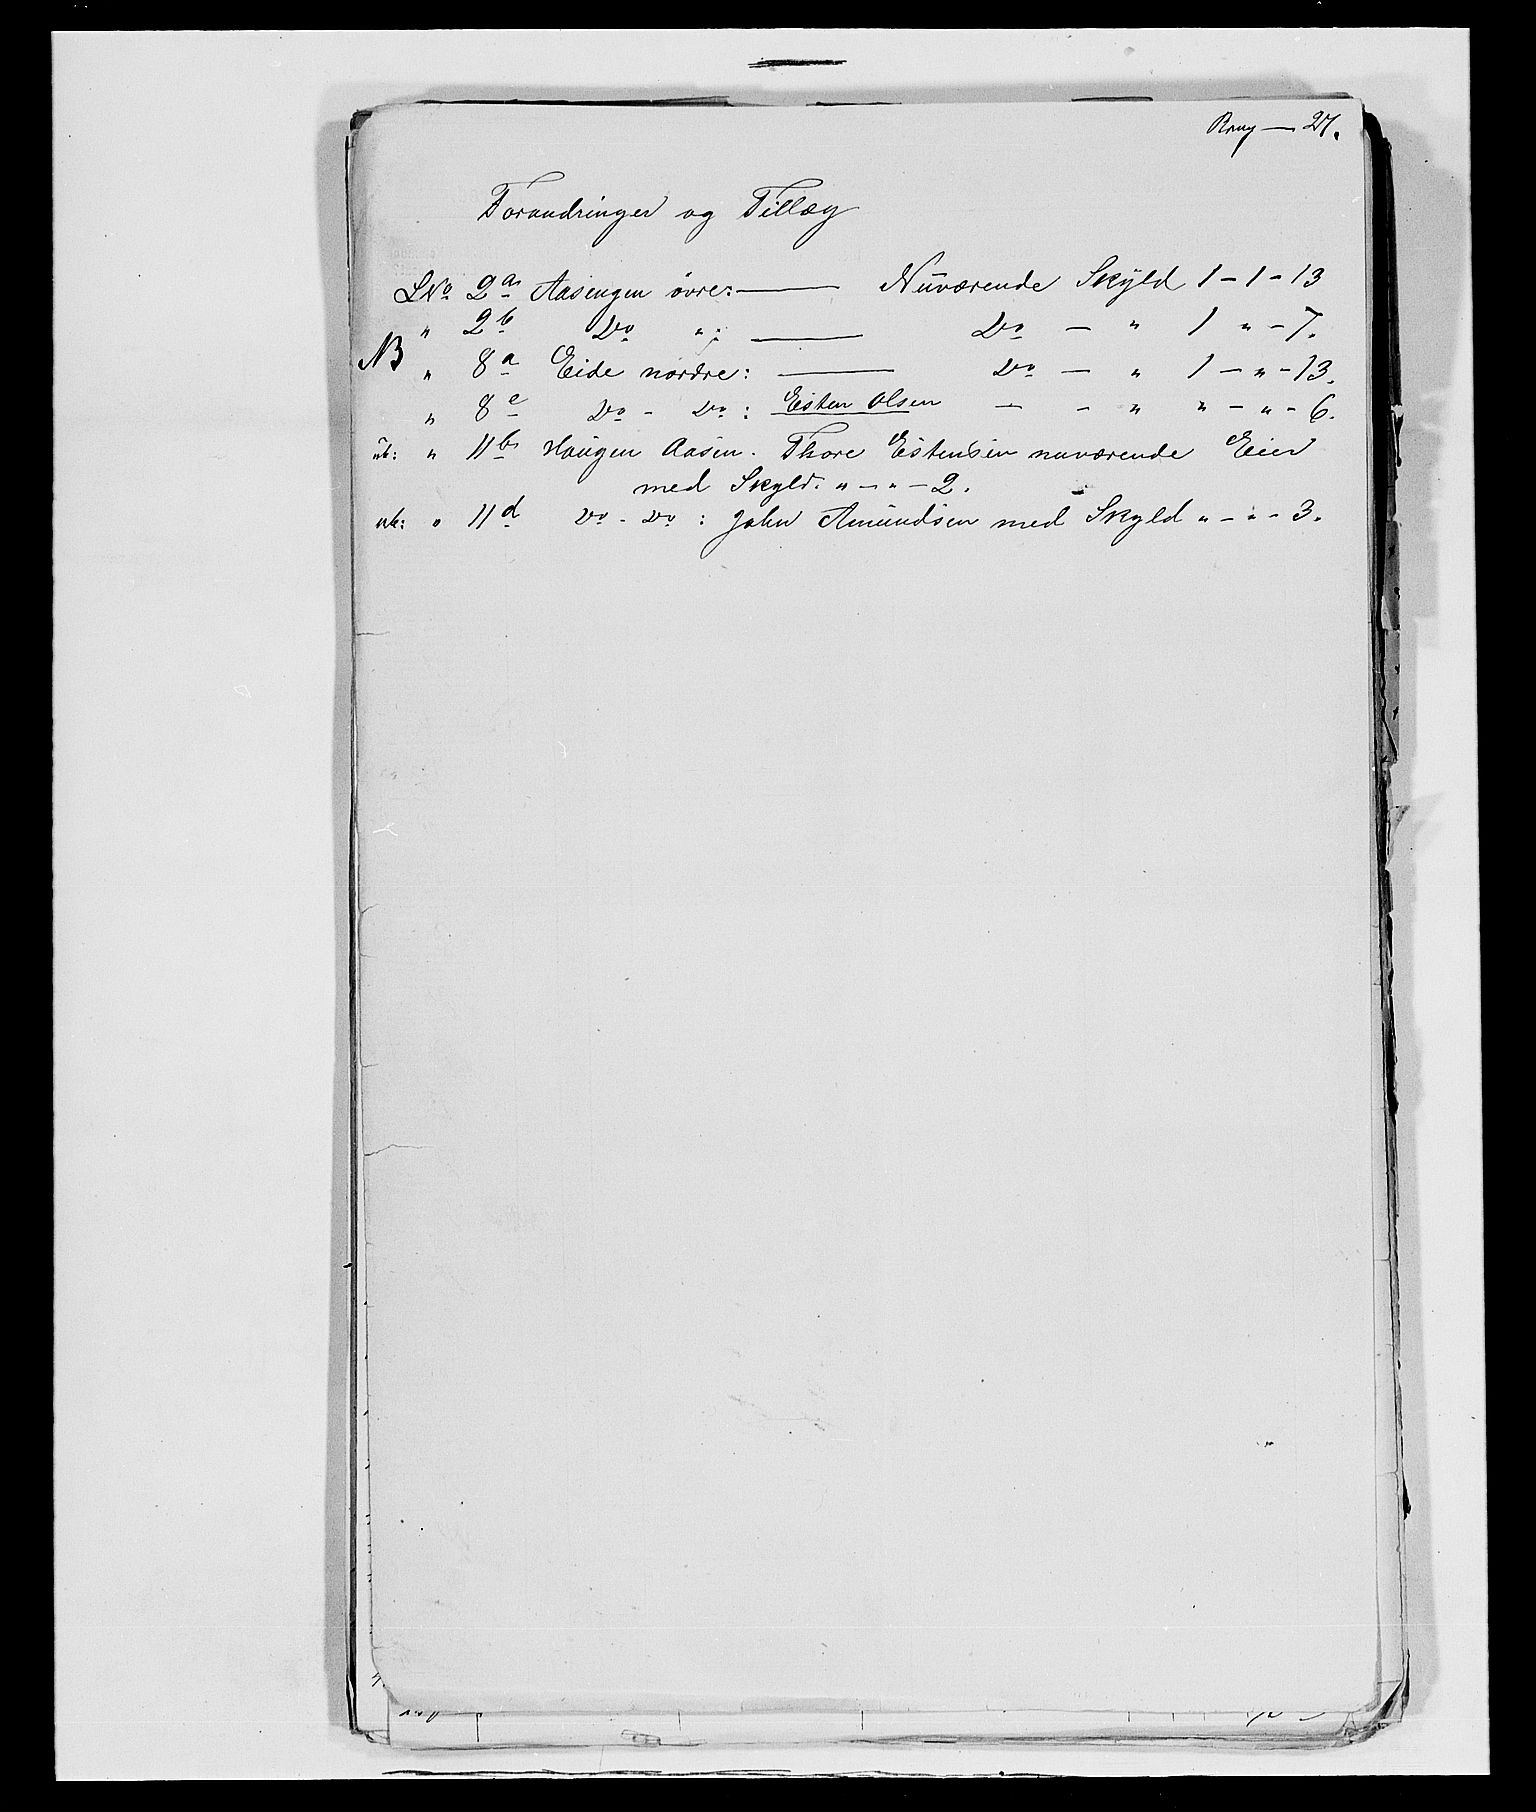 Brug — 27.
Forandringer og Tillæg
LNo 2a Aasengen övre: — Nuværende Skyld 1 - 1 - 13
" 2b Do " : — Do — " 1 " - 7.
NB " 8a Eide nordre: — Do — " 1 - " - 13.
" 8e Do - Do : Esten Olsen — - " " - " - 6.
nb: " 11b Haugen Aasen. Thore Estensen nuværende Eier
med Skyld. " - " - 2.
nb: " 11d Do - Do : John Amundsen med Skyld " - " - 3.